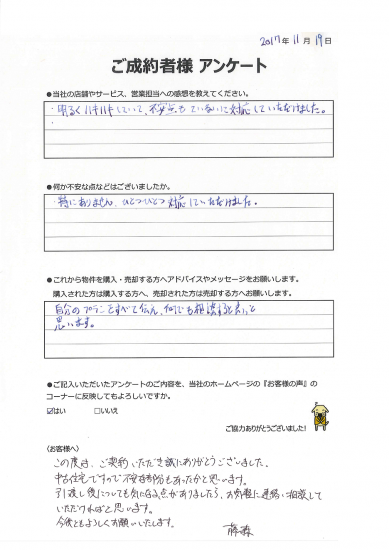 2017年 11月 19日
ご成約者様 アンケート
●当社の店舗やサービス、営業担当への感想を教えてください。
・明るくハキハキしていて、不安点もていねいに対応していただけました。
●何か不安な点などはございましたか。
・特にありません。ひとつひとつ対応していただけました。
●これから物件を購入・売却する方へアドバイスやメッセージをお願いします。
購入された方は購入する方へ、売却された方は売却する方へお願いします。
自分のプランをすべて伝え、何でも相談すると良いと
思います。
●ご記入いただいたアンケートのご内容を、当社のホームページの『お客様の声』の
コーナーに反映してもよろしいですか。
☑はい □いいえ
ご協力ありがとうございました!
〈お客様へ〉
この度は、ご契約いただき誠にありがとうございました。
中古住宅ですので不安な部分もあったかと思います。
引渡し後についても気になる点がありましたら、お気軽に連絡・相談して
いただければと思います。
今後ともよろしくお願いいたします。
藤森